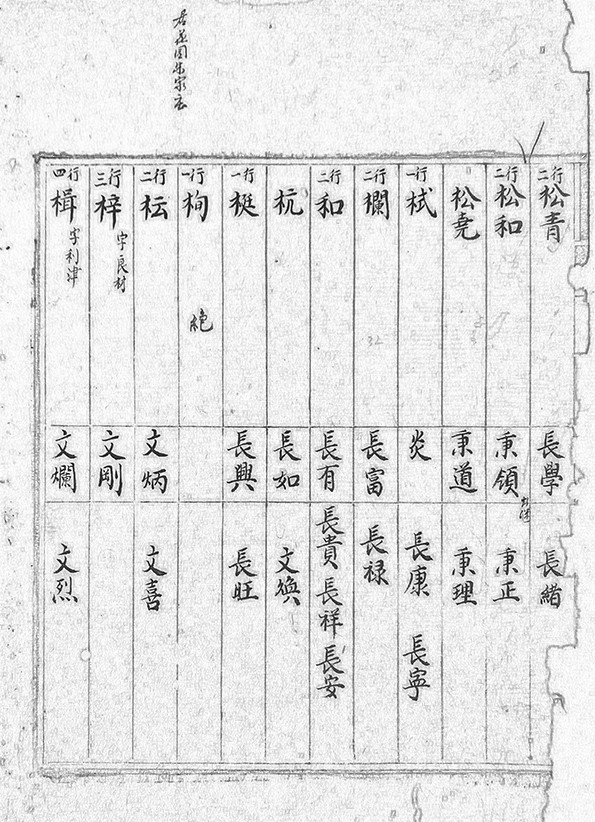 居花園朱家店
行二 松青 長學 長緒
行二 松和 秉領 秉正
松堯 秉道 秉理
行一 栻 炎 長康 長寧
行二 欄 長富 長禄
行二 和 長有 長貴 長祥 長安
杭 長如 文煥
行一 梃 長興 長旺
行一 栒 絶
行二 枟 文炳 文喜
行三 梓 字良材 文剛
行四 楫 字利津 文爛 文烈